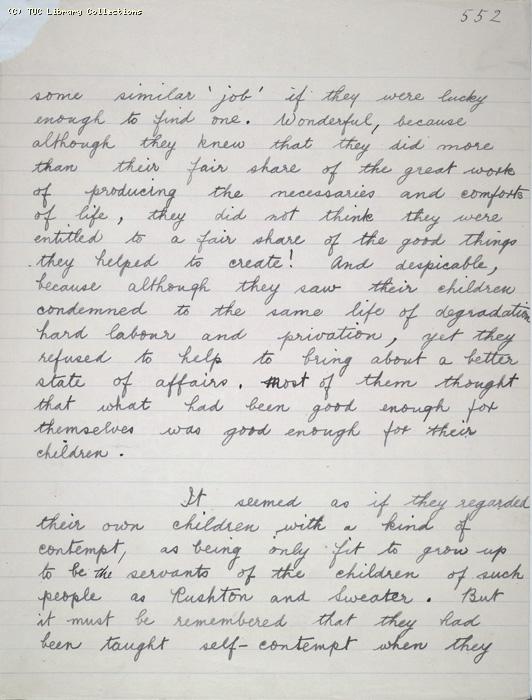 (C) TUC Library Collections
552
some similar 'job' if they were lucky
enough to find one. Wonderful, because
although they knew that they did more
than their fair share of the great work
of producing the necessaries and comforts
of life, they did not think they were
entitled to a fair share of the good things
they helped to create! And despicable,
because although they saw their children
condemned to the same life of degradation
hard labour and privation, yet they
refused to help to bring about a better
state of affairs. Most of them thought
that what had been good enough for
themselves was good enough for their
children.
It seemed as if they regarded
their own children with a kind of
contempt, as being only fit to grow up
to be the servants of the children of such
people as Rushton and Sweater. But
it must be remembered that they had
been taught self-contempt when they